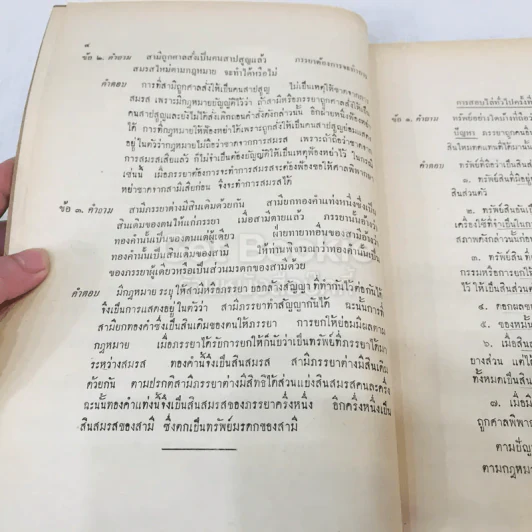 ๙
ข้อ ๒. คำถาม สามีถูกศาลสั่งเป็นคนสาปสูญแล้ว ภรรยาต้องการจะทำการ
สมรสใหม่ตามกฎหมาย จะทำได้หรือไม่
คำตอบ การที่สามีถูกศาลสั่งให้เป็นคนสาปสูญ ไม่เป็นเหตุให้ขาดจากการ
สมรส เพราะมีกฎหมายบัญญัติไว้ว่า ถ้าสามีหรือภรรยาถูกศาลสั่งให้เป็น
คนสาปสูญและยังไม่ได้สั่งเพิกถอนคำสั่งดังกล่าวนั้น อีกฝ่ายหนึ่งฟ้องหย่า
ได้ การที่กฎหมายให้ฟ้องหย่าได้เพราะถูกสั่งให้เป็นคนสาปสูญย่อมแสดง
อยู่ในตัวว่ากฎหมายไม่ถือว่าขาดจากการสมรส เพราะถ้าถือว่าขาดจาก
การสมรสเสียแล้ว ก็ไม่จำเป็นต้องบัญญัติให้เป็นเหตุฟ้องหย่าไว้ ในกรณี
เช่นนี้ เมื่อภรรยาต้องการจะทำการสมรสจะต้องฟ้องขอให้ศาลพิพากษา
หย่าขาดจากสามีเสียก่อน จึงจะทำการสมรสได้
ข้อ ๓. คำถาม สามีภรรยาต่างมีสินเดิมด้วยกัน สามียกทองคำแท่งหนึ่งซึ่งเป็น
สินเดิมของตนให้แก่ภรรยา เมื่อสามีตายแล้ว ภรรยานั้นอ้างว่า
ทองคำนั้นเป็นของตนแต่ผู้เดียว ฝ่ายทายาทอื่นของสามีอ้างว่า
ทองคำนั้นเป็นสินเดิมของสามี ให้ท่านพิจารณาว่าทองคำนั้นเป็น
ของภรรยาผู้เดียวหรือเป็นส่วนมรดกของสามีด้วย
คำตอบ มีกฎหมายระบุให้สามีหรือภรรยา บอกล้างสัญญา ที่ทำกันไว้ต่อกันได้
จึงเป็นการแสดงอยู่ในตัวว่า สามีภรรยาทำสัญญากันได้ ฉะนั้นการที่
สามียกทองคำซึ่งเป็นสินเดิมของตนให้ภรรยา การยกให้ย่อมมีผลตาม
กฎหมาย เมื่อภรรยาได้รับการยกให้ก็นับว่าเป็นทรัพย์ที่ภรรยาได้มา
ระหว่างสมรส ทองคำนี้จึงเป็นสินสมรส สามีภรรยาต่างมีสินเดิม
ด้วยกัน ตามปรกติสามีภรรยาต่างมีสิทธิได้ส่วนแบ่งสินสมรสคนละครึ่ง
ฉะนั้นทองคำแท่งนี้จึงเป็นสินสมรสของภรรยาครึ่งหนึ่ง อีกครึ่งหนึ่งเป็น
สินสมรสของสามี ซึ่งตกเป็นทรัพย์มรดกของสามี
การสอบไล่ทั่วไปครั้งที่
ข้อ ๑. คำถาม ทรัพย์อย่างใดบ้างที่ถือว่า
ปัญหา ภรรยาถูกคน
สินไหมทดแทนที่ได้มานั้น
คำตอบ ทรัพย์ที่ถือว่าเป็นสิน
๑. ทรัพย์สินที่มีอยู่
สินส่วนตัว
๒. ทรัพย์สินที่เป็น
เครื่องใช้ที่จำเป็นในการ
สภาพดังกล่าวนั้นก่อน
๓. ทรัพย์สินที่
กรรมหรือการยกให้
ไว้ ให้เป็นสินส่วนตัว
๔. ดอกผลของ
๕. ของหมั้น
๖. เมื่อสิน
บางส่วน แต่ได้
ทั้งหมดเป็นสิน
๗. เมื่อมี
ถูกศาลพิพาก
ตามบัญ
ตามกฎหมาย